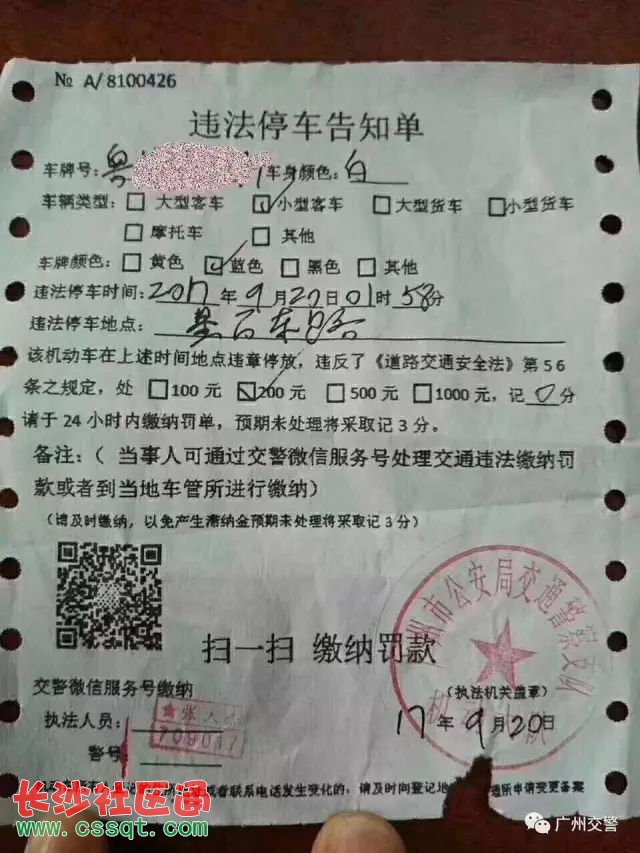 № A/8100426
违法停车告知单
车牌号：粤 车身颜色：白
车辆类型：□ 大型客车 ☑ 小型客车 □ 大型货车 □ 小型货车
□ 摩托车 □ 其他
车牌颜色：□ 黄色 ☑ 蓝色 □ 黑色 □ 其他
违法停车时间：2017年9月20日01时58分
违法停车地点：
该机动车在上述时间地点违章停放，违反了《道路交通安全法》第56
条之规定，处 □100元 ☑200元 □500元 □1000元，记0分
请于24小时内缴纳罚单，预期未处理将采取记3分。
备注：（ 当事人可通过交警微信服务号处理交通违法缴纳罚
款或者到当地车管所进行缴纳）
（请及时缴纳，以免产生滞纳金预期未处理将采取记3分）
州市公安局交通警察支队
扫一扫 缴纳罚款
交警微信服务号缴纳
（执法机关盖章）
执法人员：
17年9月20日
警号：
或者联系电话发生变化的，请及时登记地
申请变更备案
长沙社区通
www.cssqt.com
广州交警